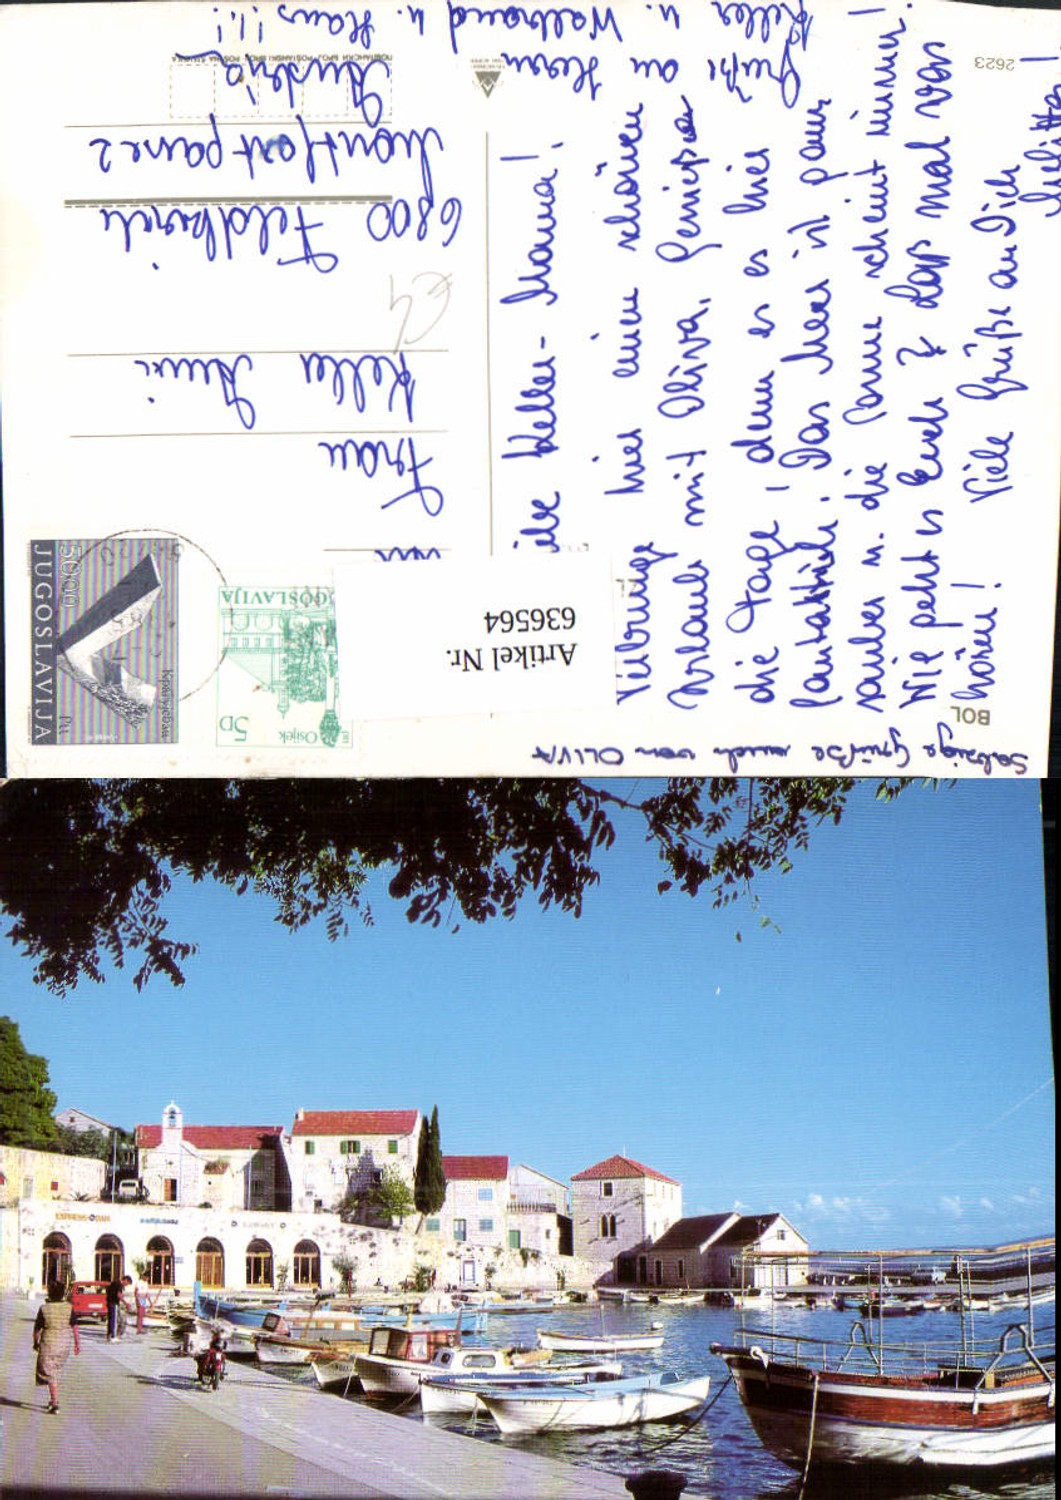 Liebe Keller-Mama!
Verbringe hier einen schönen
Urlaub mit Oliva. Genießen
die Tage, denn es es hier
fantastisch. Das Meer ist ganz
sauber u. die Sonne scheint immer!
Wie geht es Euch? Lass mal was
hören! Viele Grüße an Dich
Grüße an Herrn
Keller u. Waltraud u. Haus!!!!
Salzige Grüße auch von OLIVA
BOL
2623
Frau
Keller
6800 Feldkirch
Montfortgasse 2
Austria
€4
Artikel Nr.
636564
JUGOSLAVIJA
5000
JUGOSLAVIJA
5D
Osijek
EXPRESS BAR